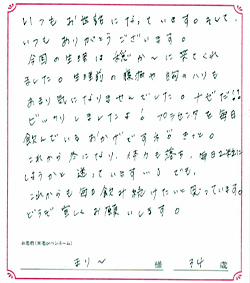 いつもお世話になっています。そして、
いつもありがとうございます。
今回の生理は穏やかに来てくれ
ました。生理前の腰痛や胸のハリも
あまり気になりませんでした。ナゼだ!!
ビックリしましたよ! プラセンタを毎日
飲んでいるおかげですネ。きっと。
これから冬になり、体力も落ち、毎日2
しようかと迷っています… でも、
これからも毎日飲み続けたいと思っています。
どうぞ宜しくお願いします。
お名前(匿名orペンネーム)
まり～ 様 34 歳